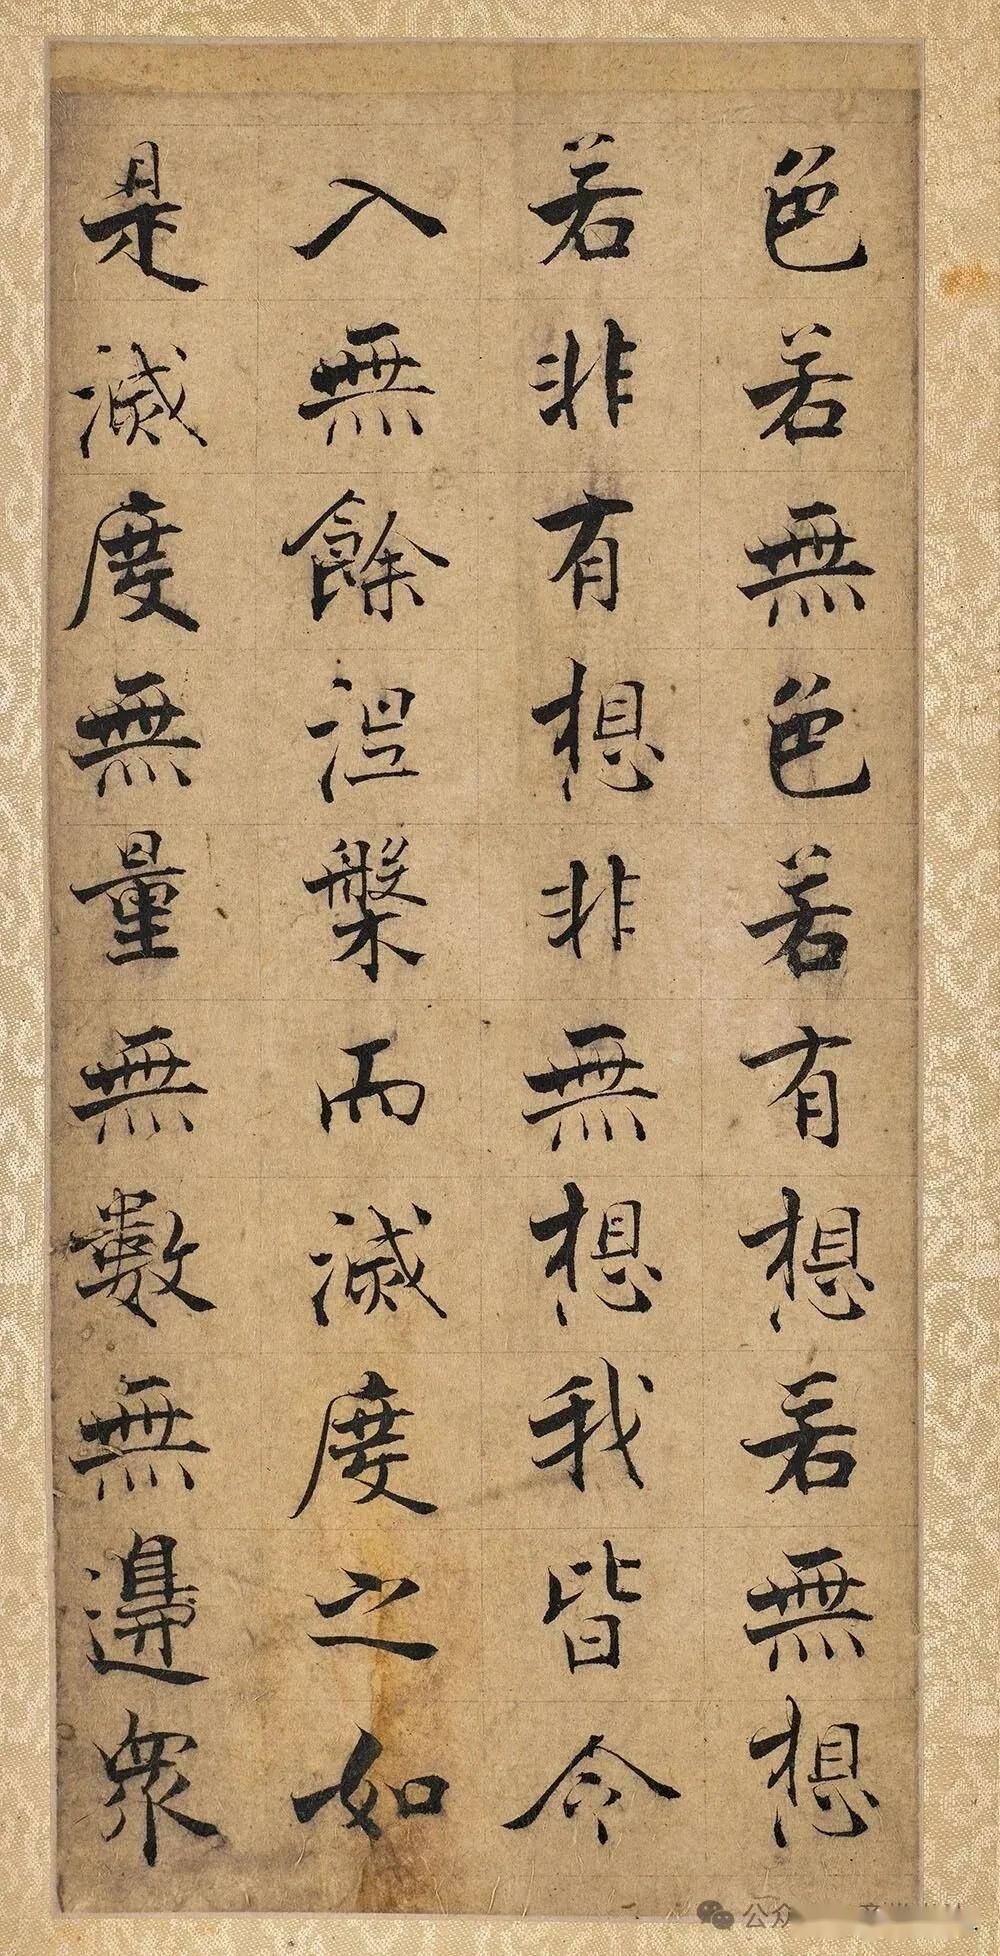 色若無色若有想若無想
若非有想非無想我皆令
入無餘涅槃而滅度之如
是滅度無量無數無邊衆
公众